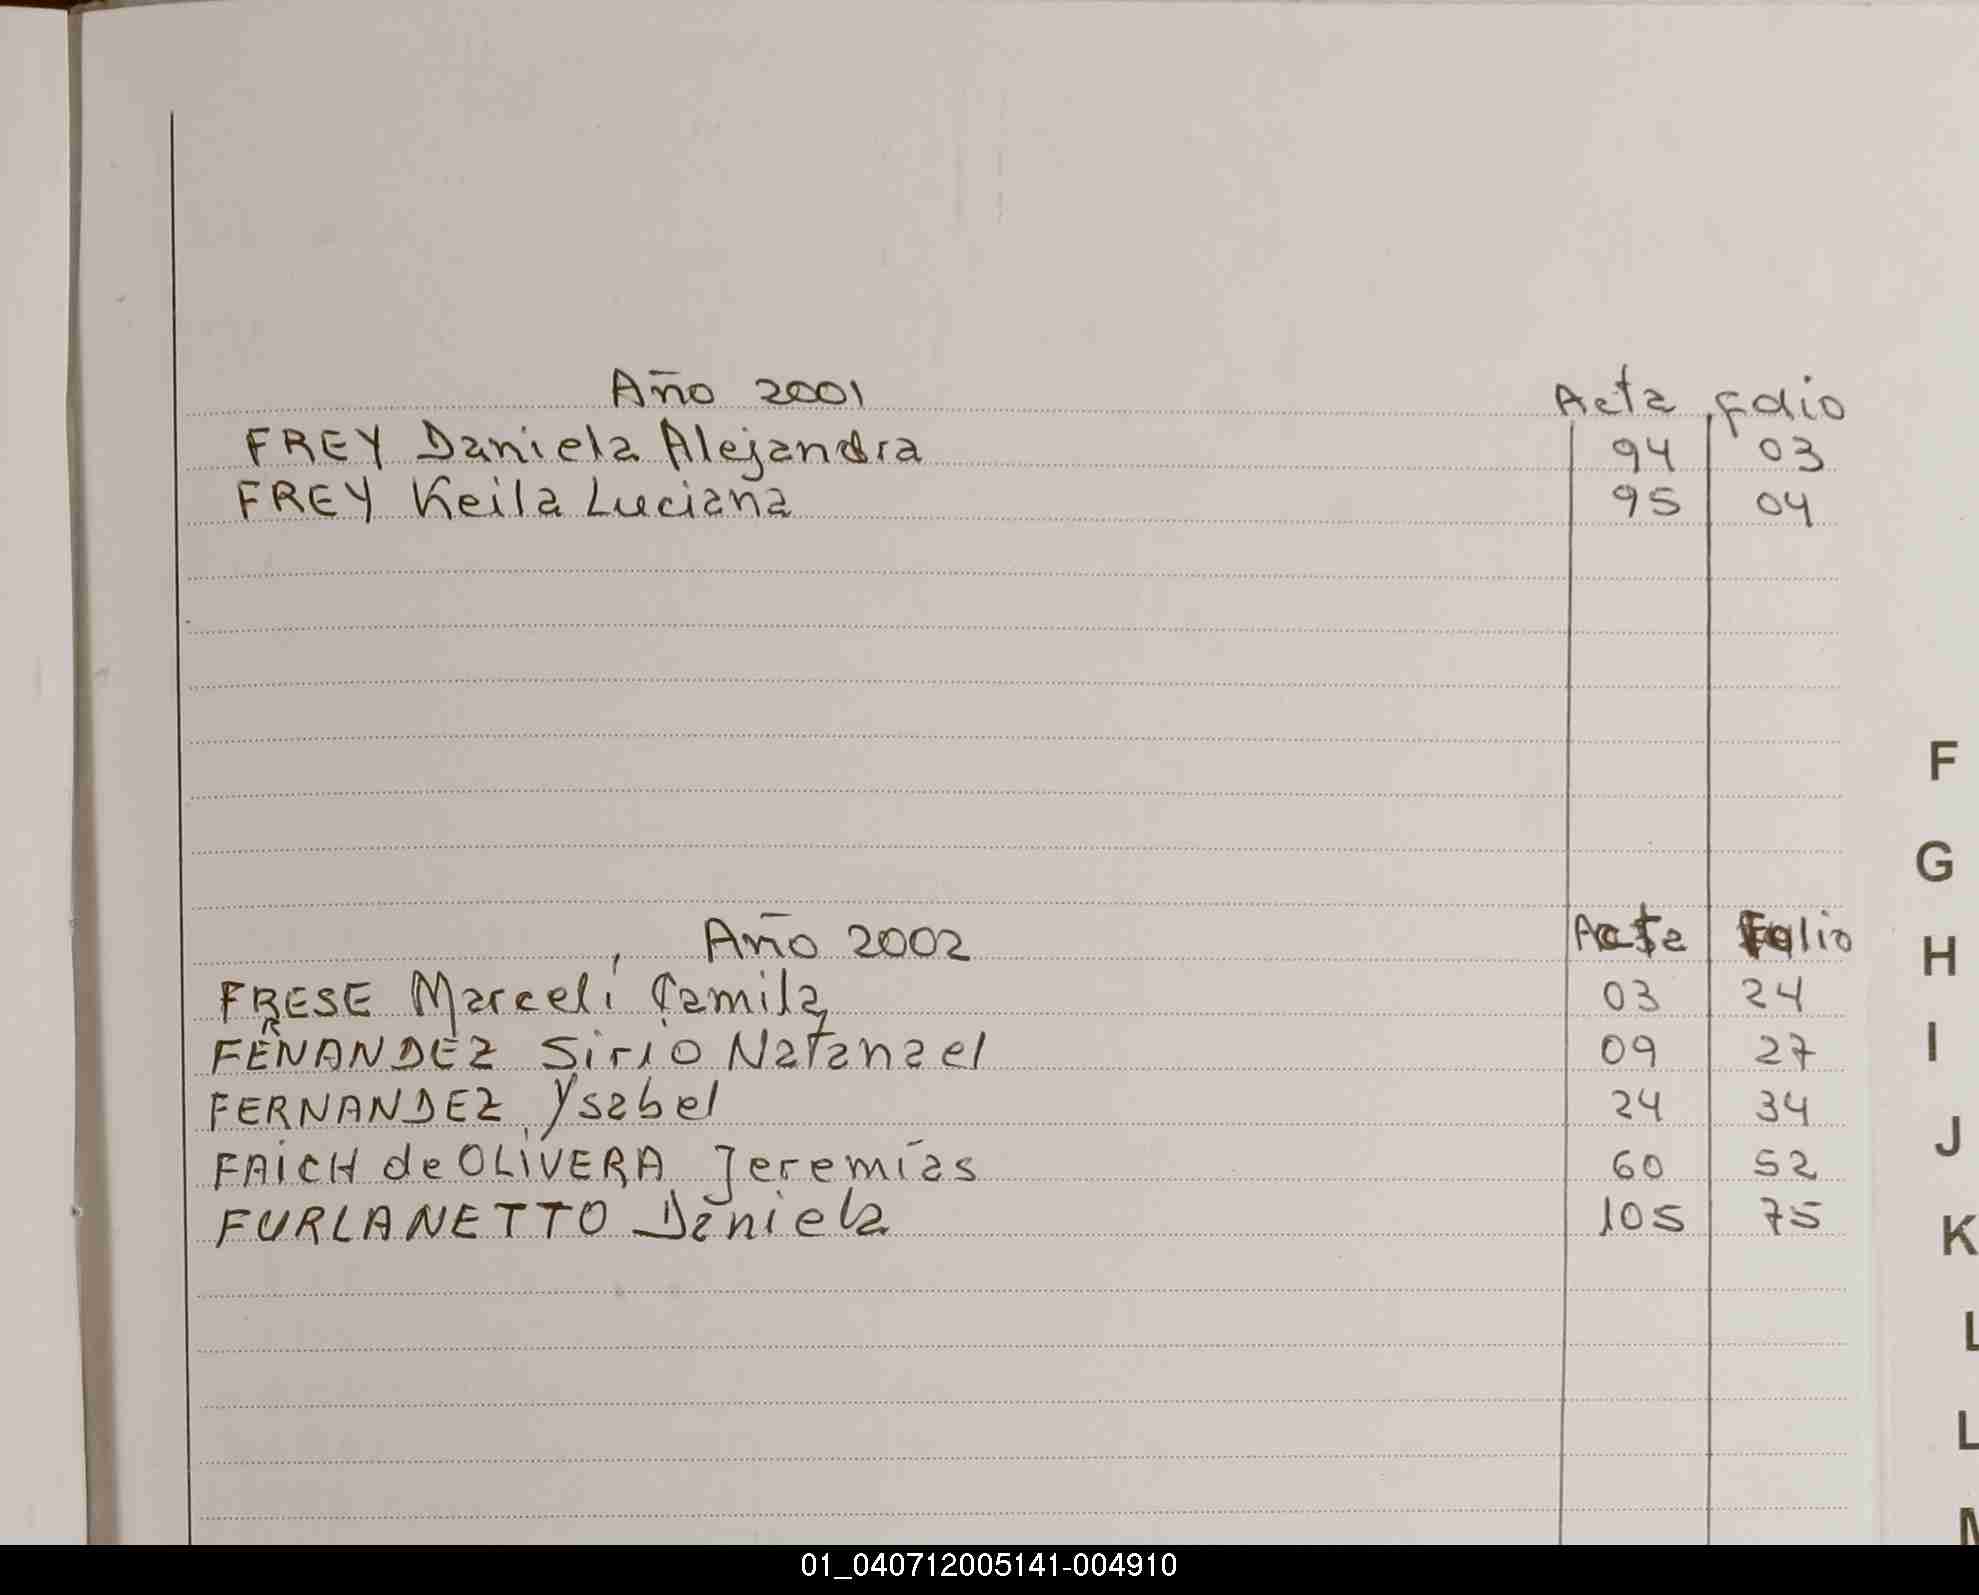 Año 2001 Acta Folio
FREY Daniela Alejandra 94 03
FREY Keila Luciana 95 04
Año 2002 Acta Folio
FRESE Marcelí Camila 03 24
FERNANDEZ Sirio Natanael 09 27
FERNANDEZ Ysabel 24 34
FAICH de OLIVERA Jeremías 60 52
FURLANETTO Daniela 105 75
F
G
H
I
J
K
L
L
M
01_040712005141-004910